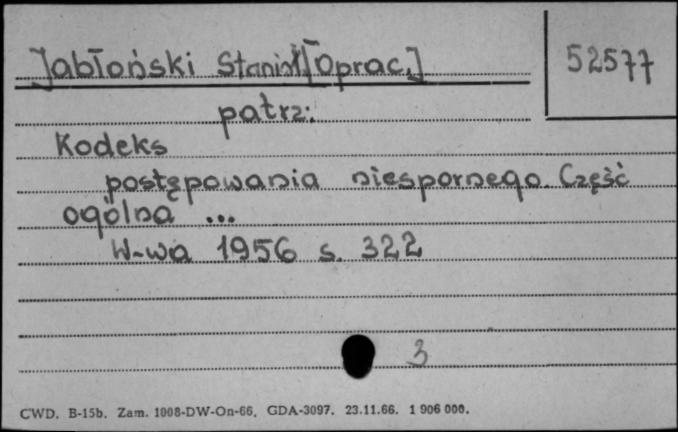 Jabłoński Stanisł. [Oprac.]
52577
patrz:
Kodeks
postępowania niespornego. Część
ogólna ...
W-wa 1956 s. 322
3
CWD. B-15b. Zam. 1008-DW-On-66. GDA-3097. 23.11.66. 1 906 000.